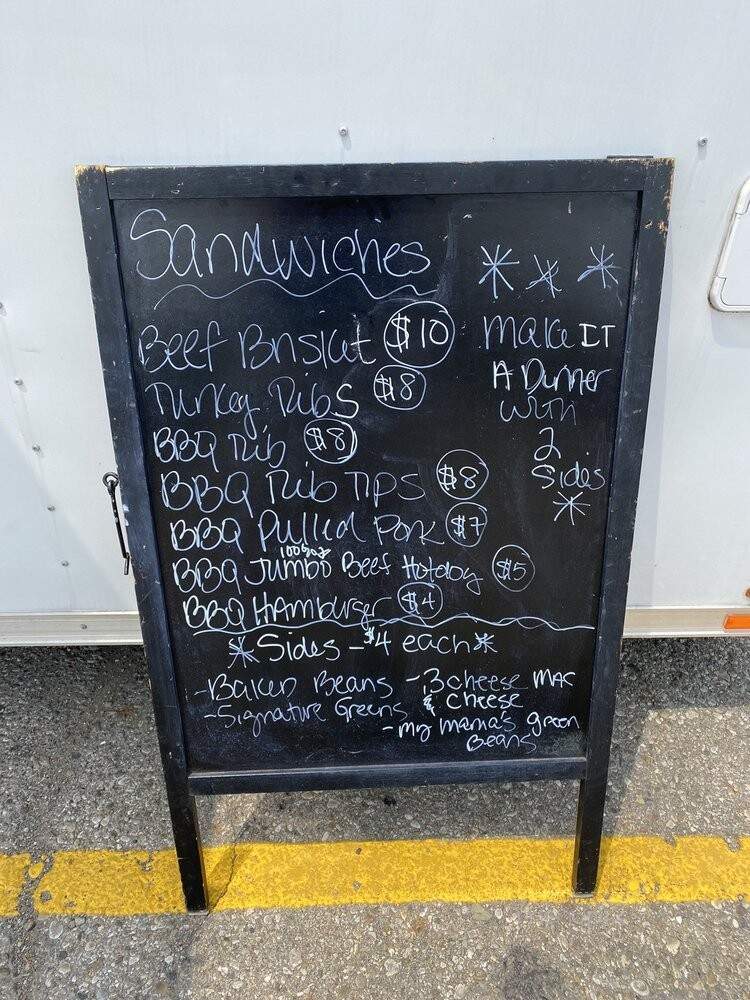 Sandwiches
Beef Brisket $10
Turkey Ribs $8
BBQ Rib $8
BBQ Rib TIPS $8
BBQ Pulled Pork $7
BBQ JUMBO Beef Hotdog $5
BBQ HAmburger $4
* * *
Make IT
A Dinner
with
2
Sides
*
* Sides - $4 each *
- Baked Beans
- Signature Greens
- 3 cheese MAC
& cheese
- my mama's green
Beans